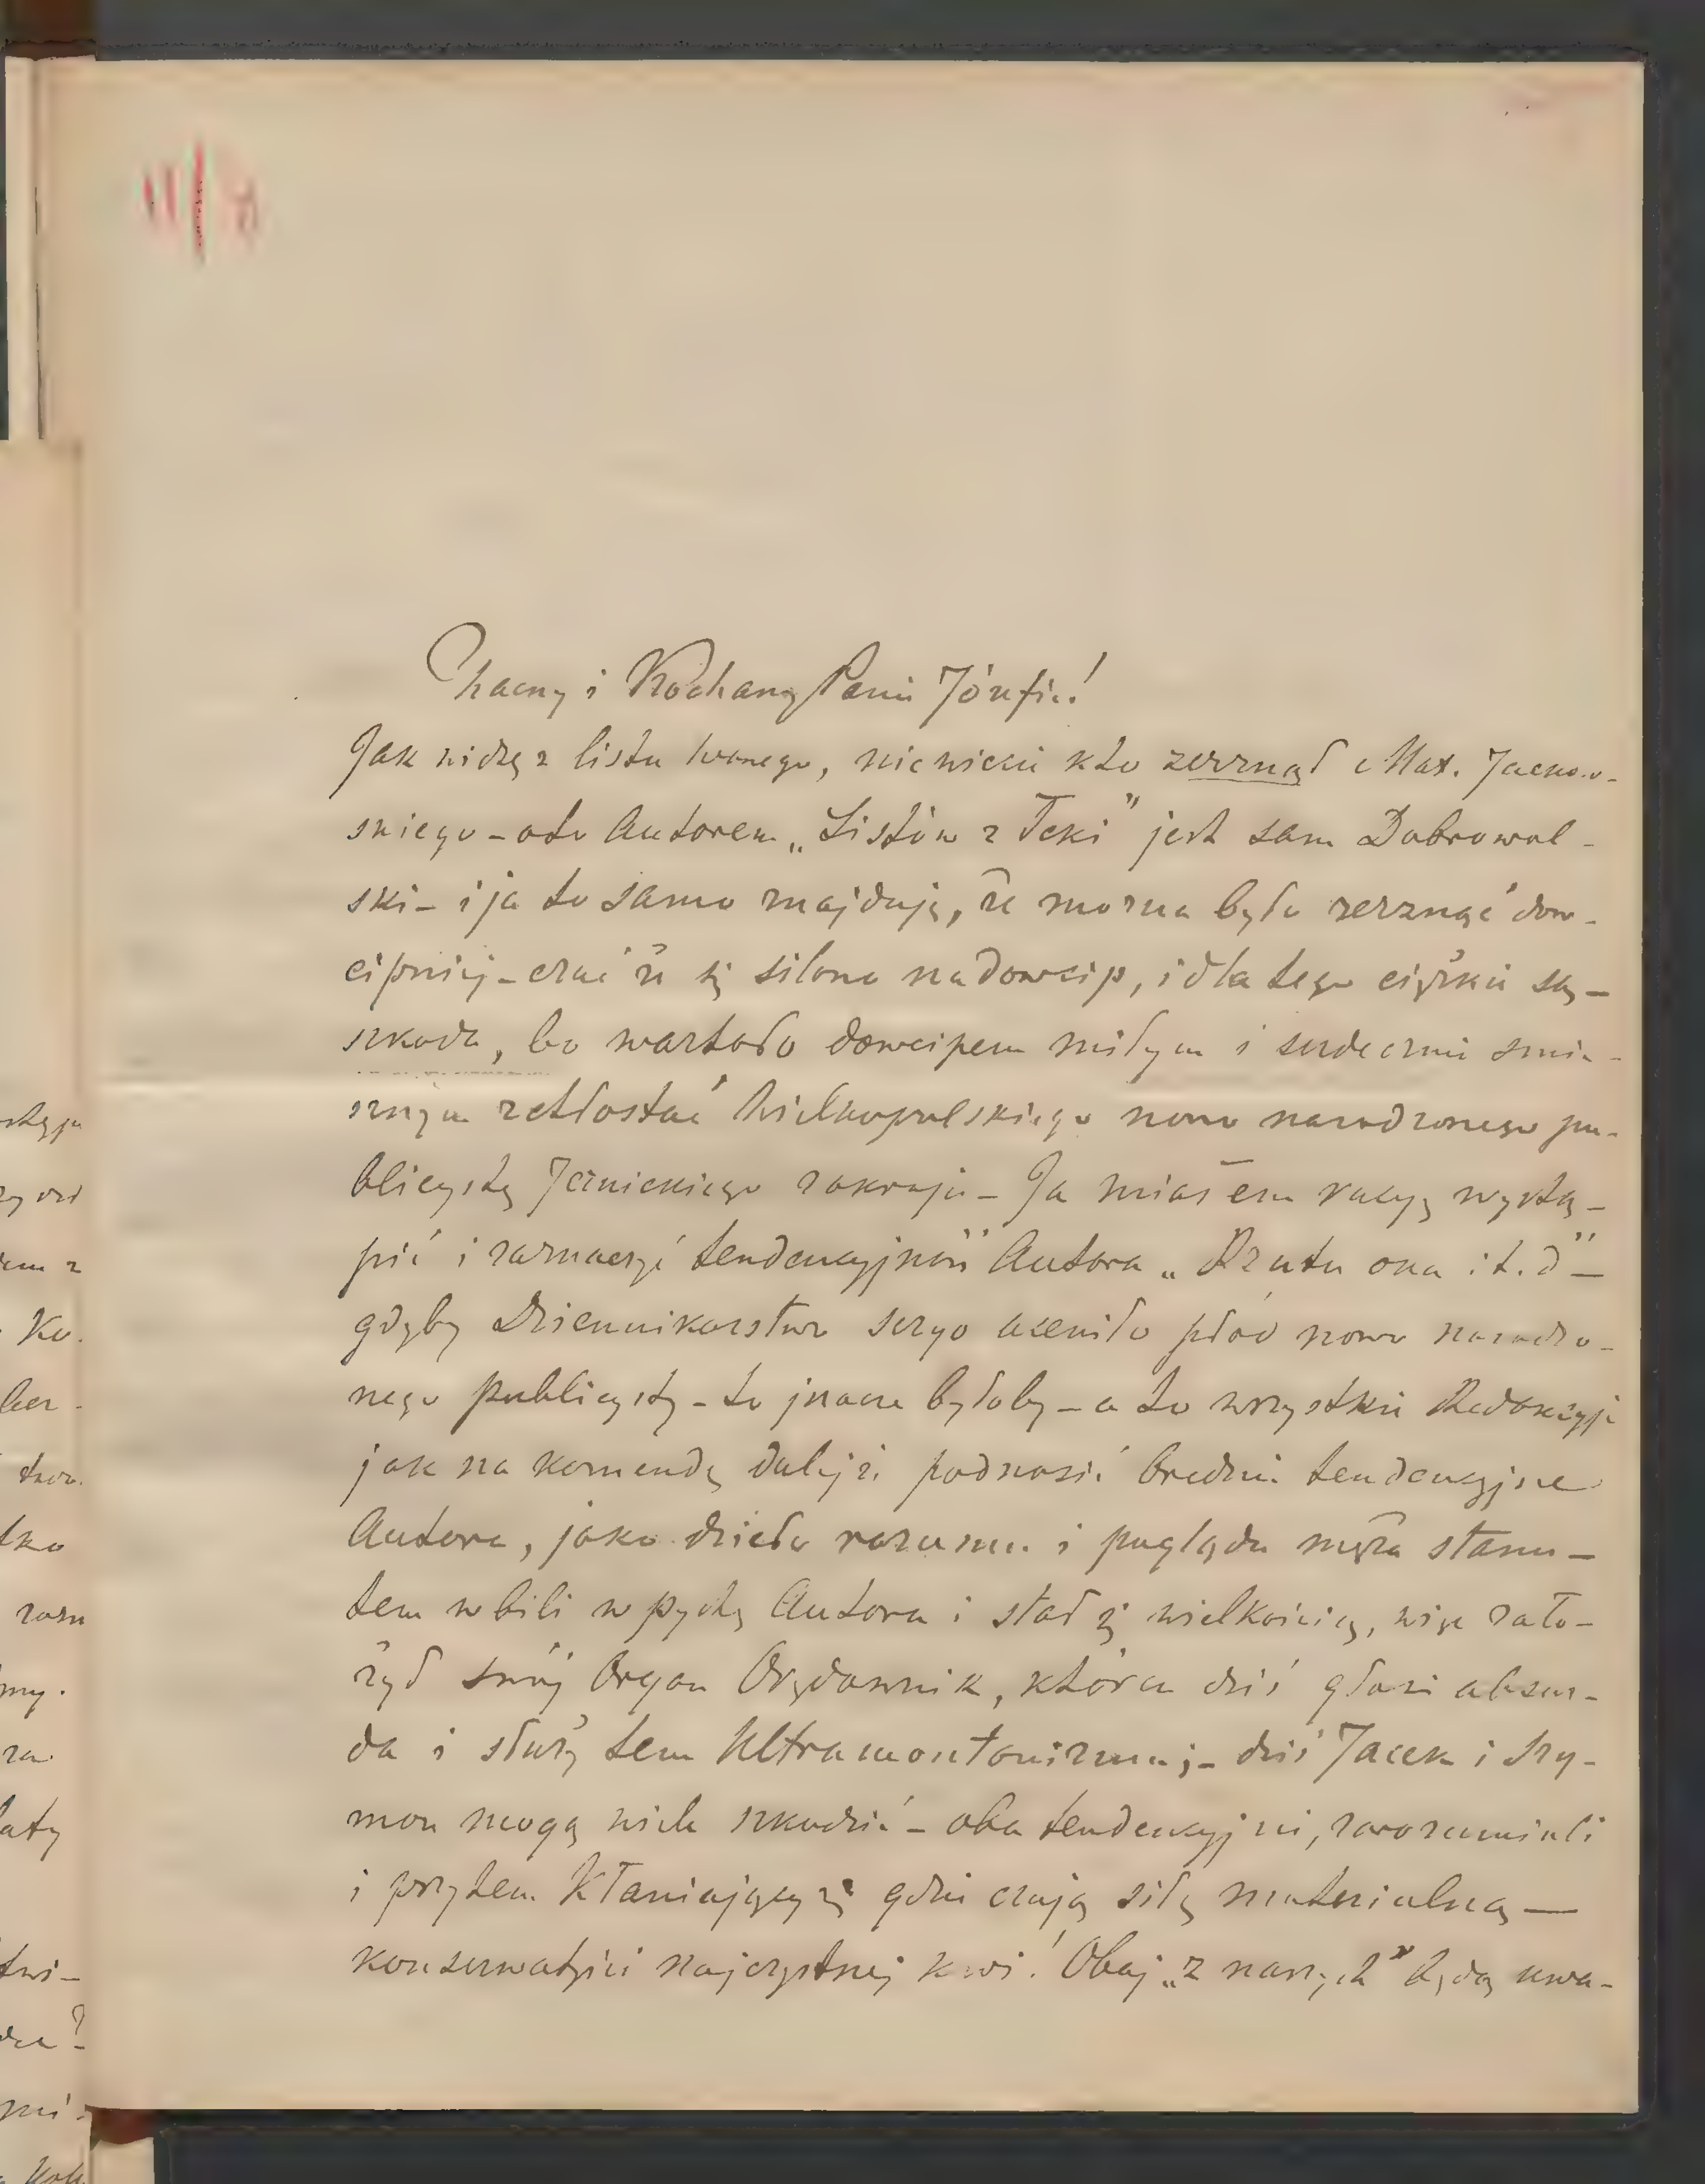 Zacny i Kochany Panie Józefie!
Jak widzę z listu twanego, nie wiecie kto zerznął Max. Jackow-
skiego – oto Autorem „Listów z Teki" jest sam Dobrowol-
ski – i ja to samo znajduję, że można było zerznąć dow-
cipniej – czuć że się silono na dowcip, i dla tego ciężkie są –
szkoda, bo wartało dowcipem miłym i serdecznie śmie-
sznym zchłostać Wielkopolskiego nowo narodzonego pu-
blicystę Jeznickiego zakroju – Ja miałem racyę wystą-
pić i zaznaczyć tendencyjność Autora „Rzutu oka i t. d" –
gdyby Dziennikarstwo seryo oceniło płód nowo narodzo-
nego publicysty – to inacze byłoby – a to wszystkie Redakcyje
jak na komendę dalejże podnosić brednie tendencyjne
Autora, jako dzieło rozumu i poglądu męża stanu –
tem wbili w pychę Autora i stał się wielkością, więc zało-
żył swój Organ Orędownik, którem dziś głosi absur-
da i służy tem Ultramontanizmowi – dziś Jacek i Szy-
mon mogą wiele szkodzić – oba tendencyjni, zarozumiali
i przytem kłaniający się gdzie czują siłę materialną —
konserwatyści najczystszej krwi! Obaj „z naszych" będą uwa-